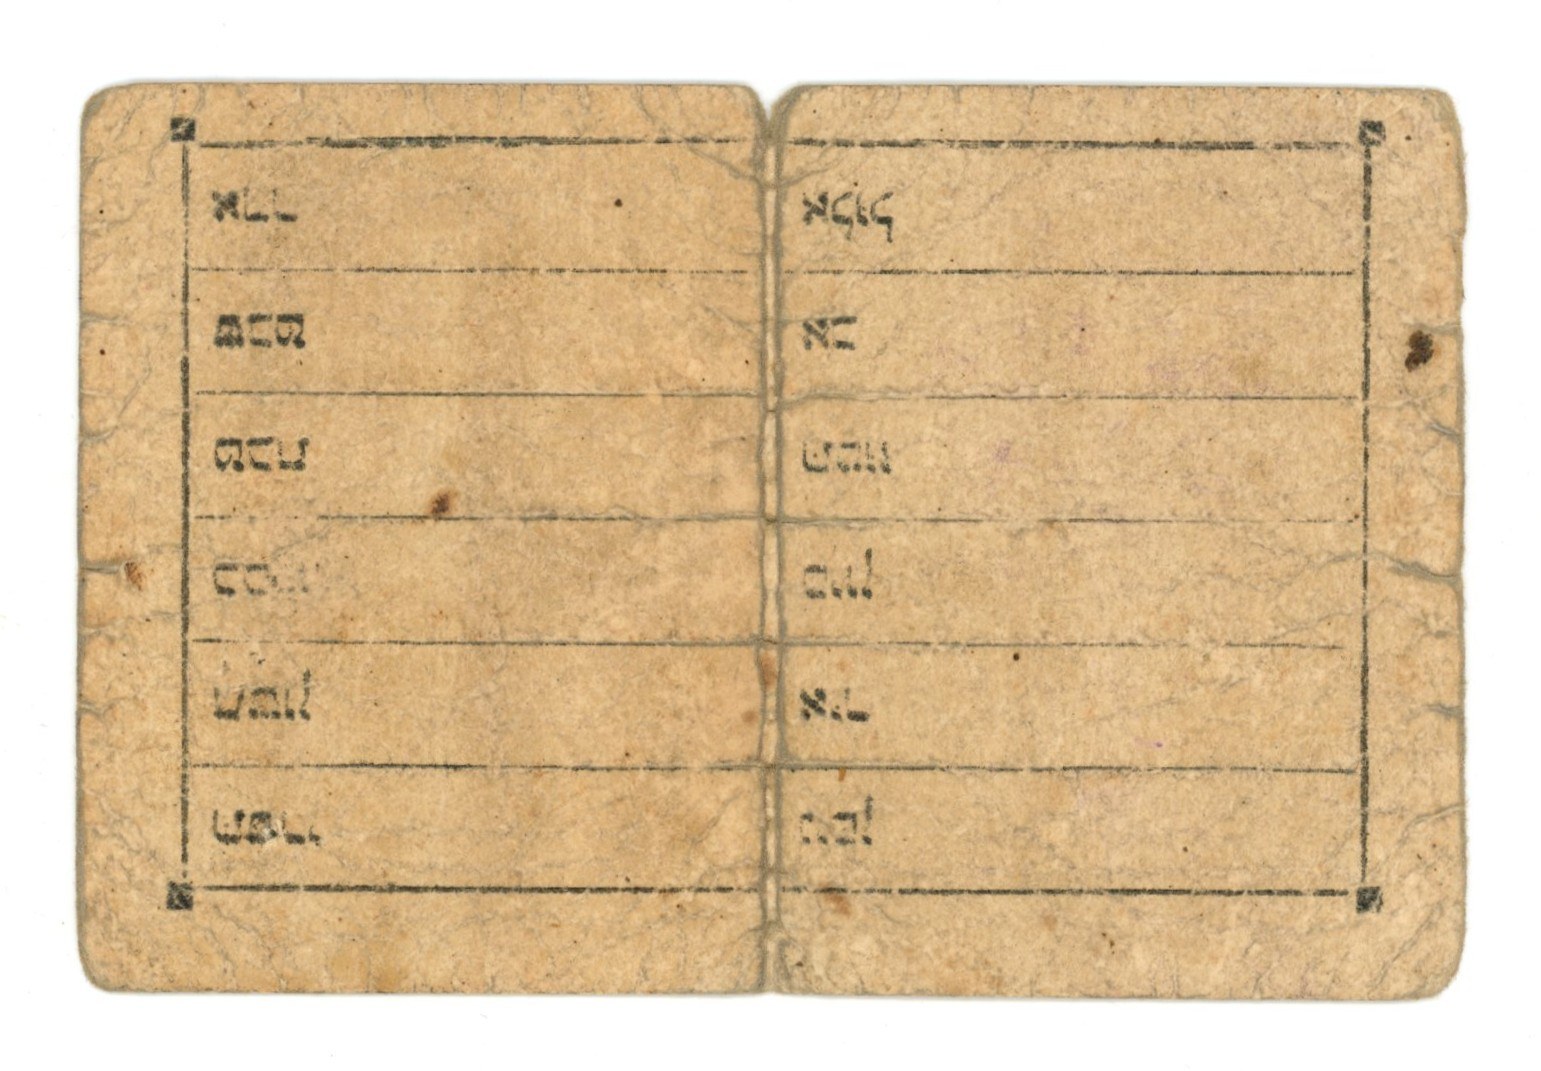 תשרי
חשון
כסלו
טבת
שבט
אדר
ניסן
איר
סיון
תמוז
אב
אלול